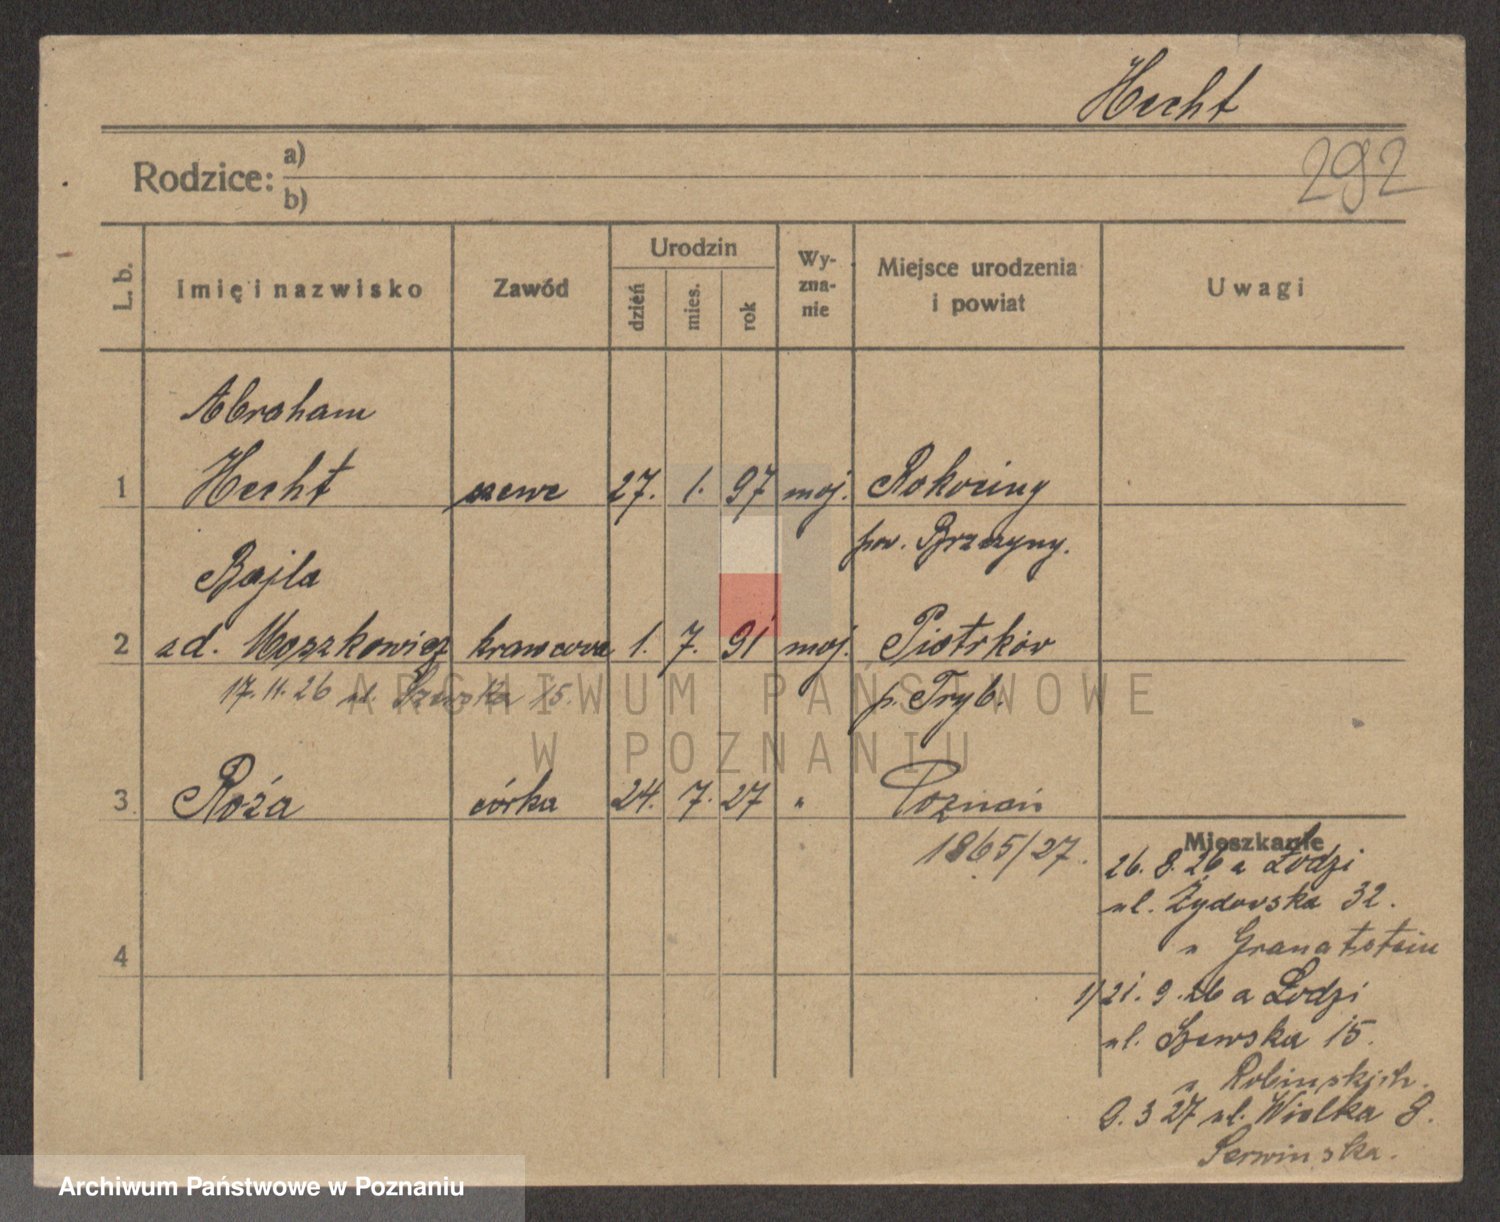 Hecht
292
Rodzice: a)
b)
L. b.
Imię i nazwisko
Zawód
Urodzin
dzień
mies.
rok
Wy-
zna-
nie
Miejsce urodzenia
i powiat
Uwagi
Abraham
1 Hecht szewc 27. 1. 97 moj. Rokiciny
pow. Brzeziny.
Bajla
2 zd. Moszkowicz krawcowa 1. 7. 91 moj. Piotrków
17.11.26 ul. Szewska 15. p. Tryb.
3 Róża córka 24. 7. 27 " Poznań
1865/27.
4
Mieszkanie
26. 8. 26 z Łodzi
ul. Żydowska 32.
u Granatstein
1/21. 9. 26 z Łodzi
ul. Szewska 15.
u Robinskich.
9. 3 27 ul. Wielka 8.
Serwinska.
ARCHIWUM PAŃSTWOWE
W POZNANIU
Archiwum Państwowe w Poznaniu